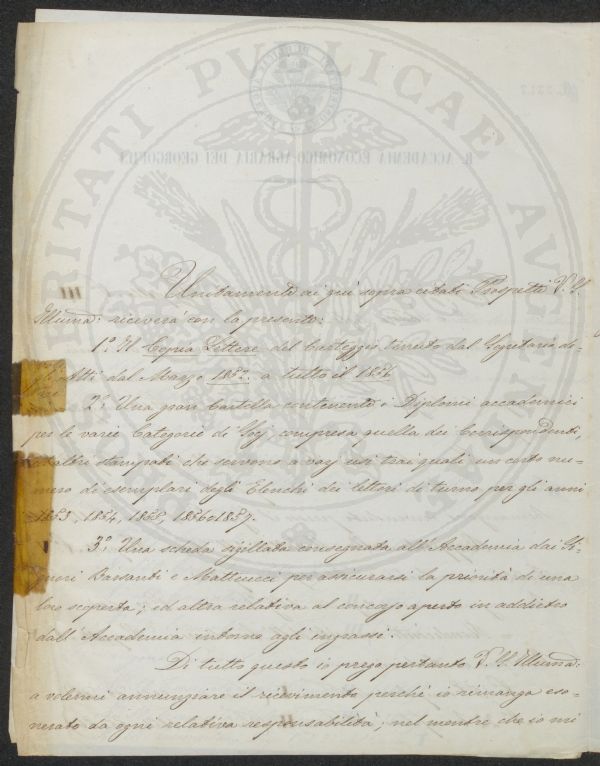 Unitamente ai quì sopra citati Prospetti V. S.
Illuma: riceverà con la presente:
1.º Il Copia Lettere del Carteggio tenuto dal Segretario de-
gli Atti dal Marzo 1852 a tutto il 1856
2.º Una gran Cartella contenente i Diplomi accademici
per le varie Categorie di Socj, compresa quella dei Corrispondenti,
ed altri stampati che servono a varj usi tra i quali un certo nu-
mero di esemplari degli Elenchi dei lettori di turno per gli anni
1853, 1854, 1855, 1856 e 1857.
3.º Una scheda sigillata consegnata all'Accademia dai Si-
gnori Barsanti e Matteucci per assicurarsi la priorità di una
loro scoperta; ed altra relativa al concorso aperto in addietro
dall'Accademia intorno agli ingrassi.
Di tutto questo io prego pertanto V. S. Illuma:
a volermi annunziare il ricevimento perchè io rimanga eso-
nerato da ogni relativa responsabilità; nel mentre che io mi